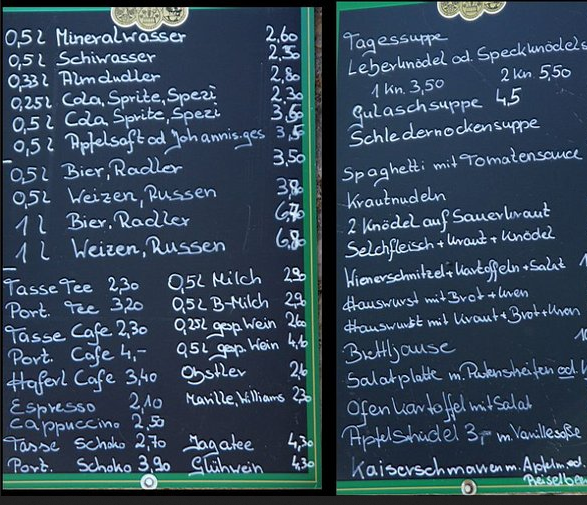 0,5 l Mineralwasser 2,60
0,5 l Schiwasser 2,50
0,33 l Almdudler 2,80
0,25 l Cola, Sprite, Spezi 2,30
0,5 l Cola, Sprite, Spezi 3,60
0,5 l Apfelsaft od. Johannis.ges 3,50
0,5 l Bier, Radler 3,50
0,5 l Weizen, Russen
1 l Bier, Radler
1 l Weizen, Russen 6,80
Tasse Tee 2,30
Port. Tee 3,20
Tasse Cafe 2,30
Port. Cafe 4,-
Haferl Cafe 3,40
Espresso 2,10
Cappuccino 2,50
Tasse Schoko 2,70
Port. Schoko 3,90
0,5 l Milch
0,5 l B-Milch
0,25 l gesp. Wein
0,5 l gesp. Wein
Obstler
Marille, Williams
Jagatee 4,30
Glühwein 4,30
Tagessuppe
Leberknödel od. Speckknödels
1 Kn. 3,50 2 Kn. 5,50
Gulaschsuppe 4,5
Schledernockensuppe
Spaghetti mit Tomatensauce
Krautnudeln
2 Knödel auf Sauerkraut
Selchfleisch + Kraut + Knödel
Wienerschnitzel + Kartoffeln + Salat 1
Hauswurst mit Brot + Kren
Hauswurst mit Kraut + Brot + Kren
Brettljause
Salatplatte m. Putenstreifen od.
Ofenkartoffel mit Salat
Apfelstrudel 3,- m. Vanillesoße
Kaiserschmarren m. Apfelm. od.
Preiselbe